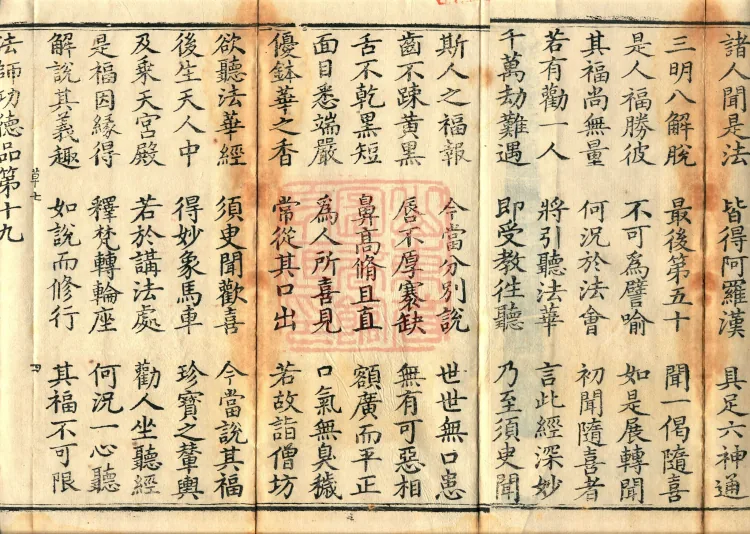 諸人聞是法 皆得阿羅漢 具足六神通
三明八解脫 最後第五十 聞一偈隨喜
是人福勝彼 不可為譬喻 如是展轉聞
其福尚無量 何況於法會 初聞隨喜者
若有勸一人 將引聽法華 言此經深妙
千萬劫難遇 即受教往聽 乃至須臾聞
斯人之福報 今當分別說 世世無口患
齒不踈黃黑 唇不厚褰缺 無有可惡相
舌不乾黑短 鼻高脩且直 額廣而平正
面目悉端嚴 為人所喜見 口氣無臭穢
優鉢華之香 常從其口出 若故詣僧坊
欲聽法華經 須臾聞歡喜 今當說其福
後生天人中 得妙象馬車 珍寶之輦輿
及乘天宮殿 若於講法處 勸人坐聽經
是福因緣得 釋梵轉輪座 何況一心聽
解說其義趣 如說而修行 其福不可限
草七
法師功德品第十九